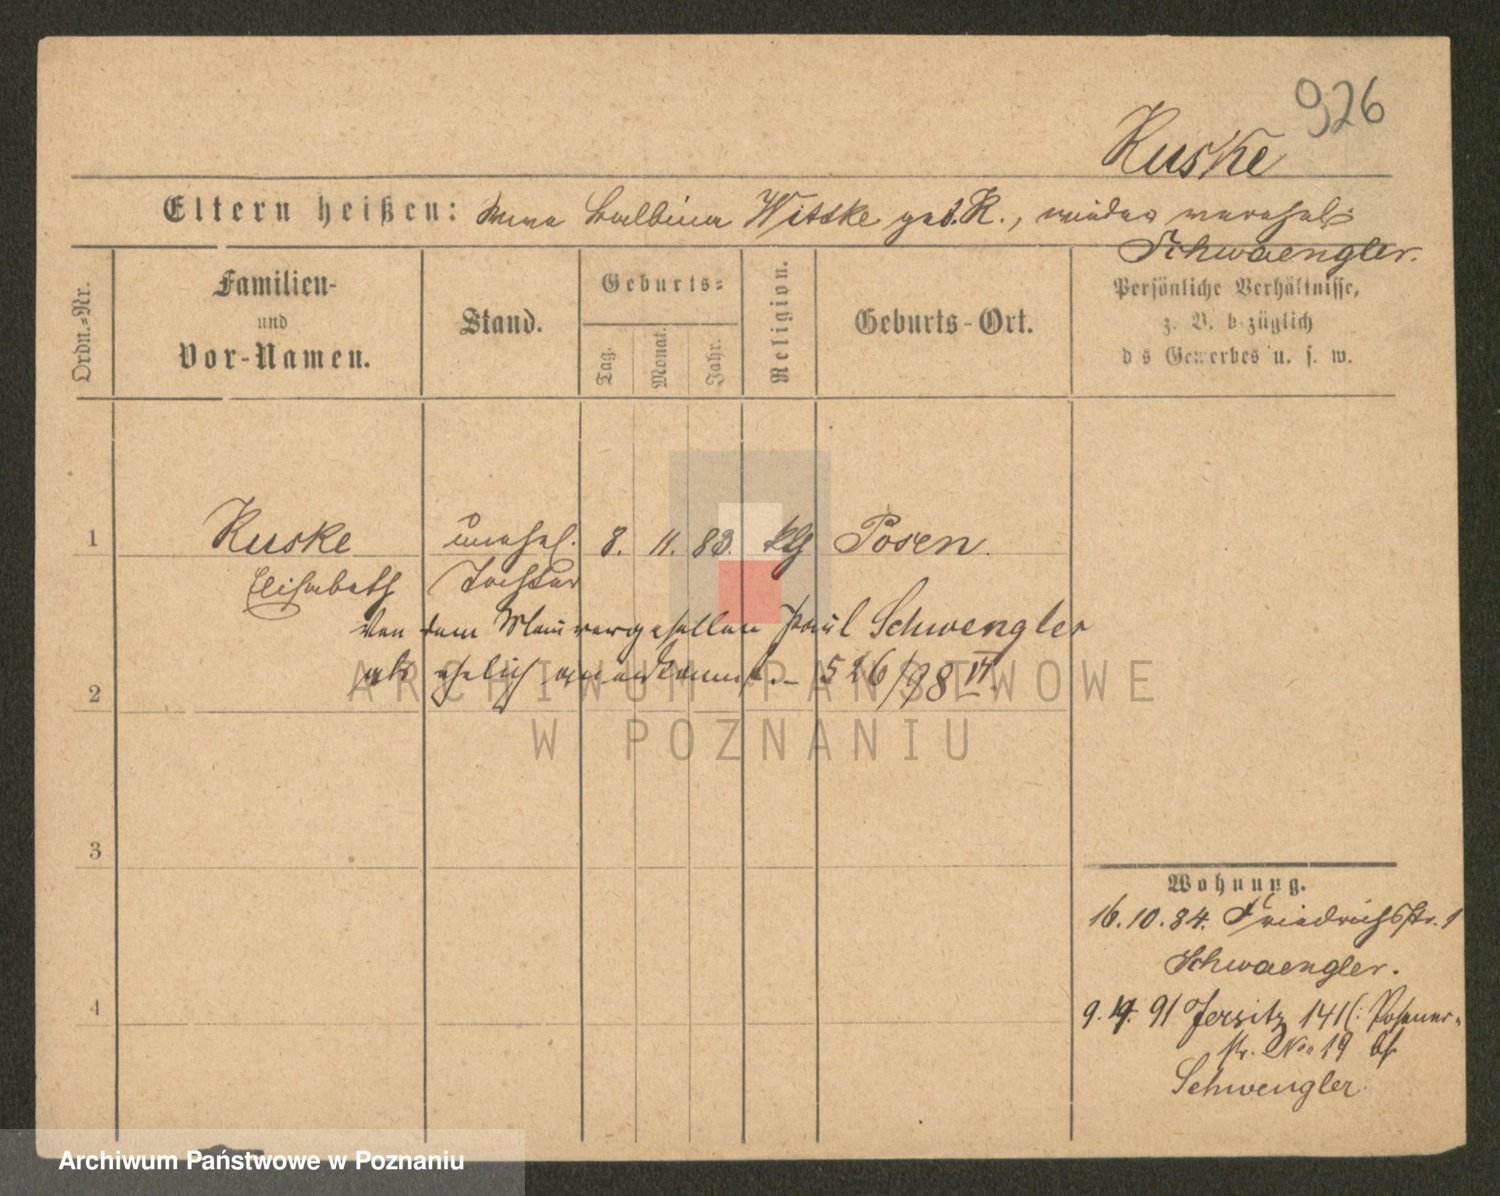 926
Ruske
Eltern heißen: Balbina Wittke geb. R., wieder verehel:
Schwaengler.
Ordn.-Nr.
Familien-
und
Vor-Namen.
Stand.
Geburts-
Tag.
Monat.
Jahr.
Religion.
Geburts-Ort.
Persönliche Verhältnisse,
z. B. bezüglich
des Gewerbes u. s. w.
1 Ruske unehel. 8. 11. 83. Posen.
Elisabeth Tochter
Von dem Maurergesellen Paul Schwengler
als ehelich anerkannt. – 526/98 VI.
ARCHIWUM PAŃSTWOWE
W POZNANIU
2
3
4
Wohnung.
16.10.84. Friedrichsstr. 1
Schwaengler.
9. 91 Jersitz 141 (: Posener-
str. No. 19 bei
Schwengler.
Archiwum Państwowe w Poznaniu